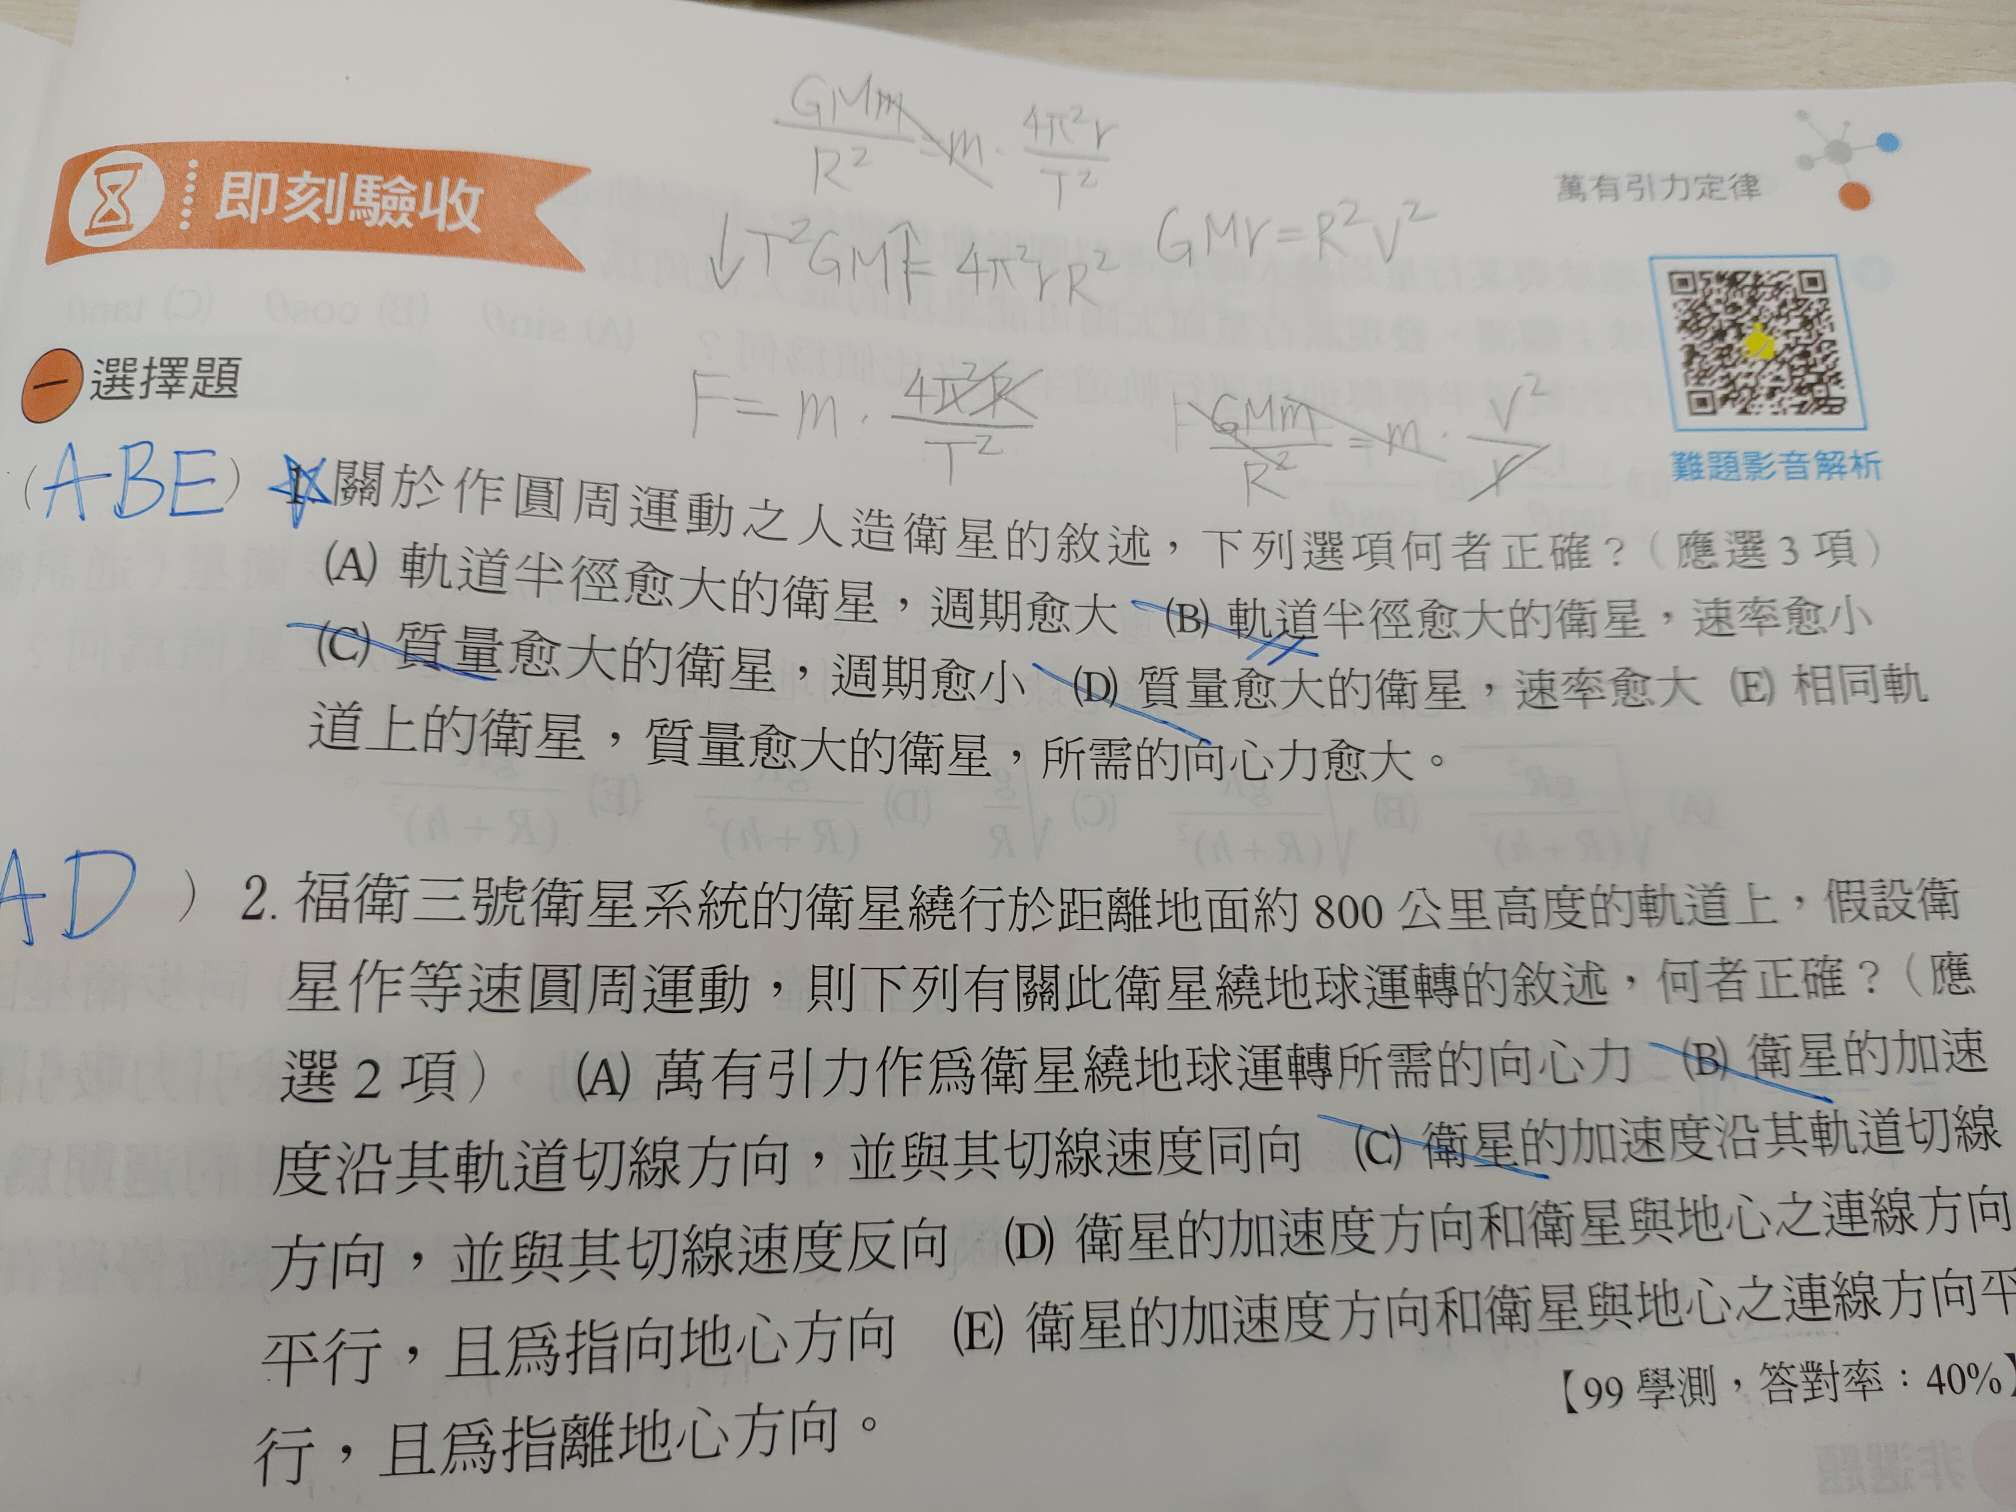 GMm/R² = m · 4π²r/T²
即刻驗收
萬有引力定律
↓T²GM↑ = 4π²rR²
GMr = R²V²
一 選擇題
F = m · 4π²R/T²
GMm/R² = m · V²/r
難題影音解析
(ABE) 1. 關於作圓周運動之人造衛星的敘述，下列選項何者正確？（應選3項）
(A) 軌道半徑愈大的衛星，週期愈大 (B) 軌道半徑愈大的衛星，速率愈小
(C) 質量愈大的衛星，週期愈小 (D) 質量愈大的衛星，速率愈大 (E) 相同軌
道上的衛星，質量愈大的衛星，所需的向心力愈大。
AD ) 2. 福衛三號衛星系統的衛星繞行於距離地面約 800 公里高度的軌道上，假設衛
星作等速圓周運動，則下列有關此衛星繞地球運轉的敘述，何者正確？（應
選 2 項） (A) 萬有引力作為衛星繞地球運轉所需的向心力 (B) 衛星的加速
度沿其軌道切線方向，並與其切線速度同向 (C) 衛星的加速度沿其軌道切線
方向，並與其切線速度反向 (D) 衛星的加速度方向和衛星與地心之連線方向
平行，且為指向地心方向 (E) 衛星的加速度方向和衛星與地心之連線方向平
行，且為指離地心方向。
【99 學測，答對率：40%】